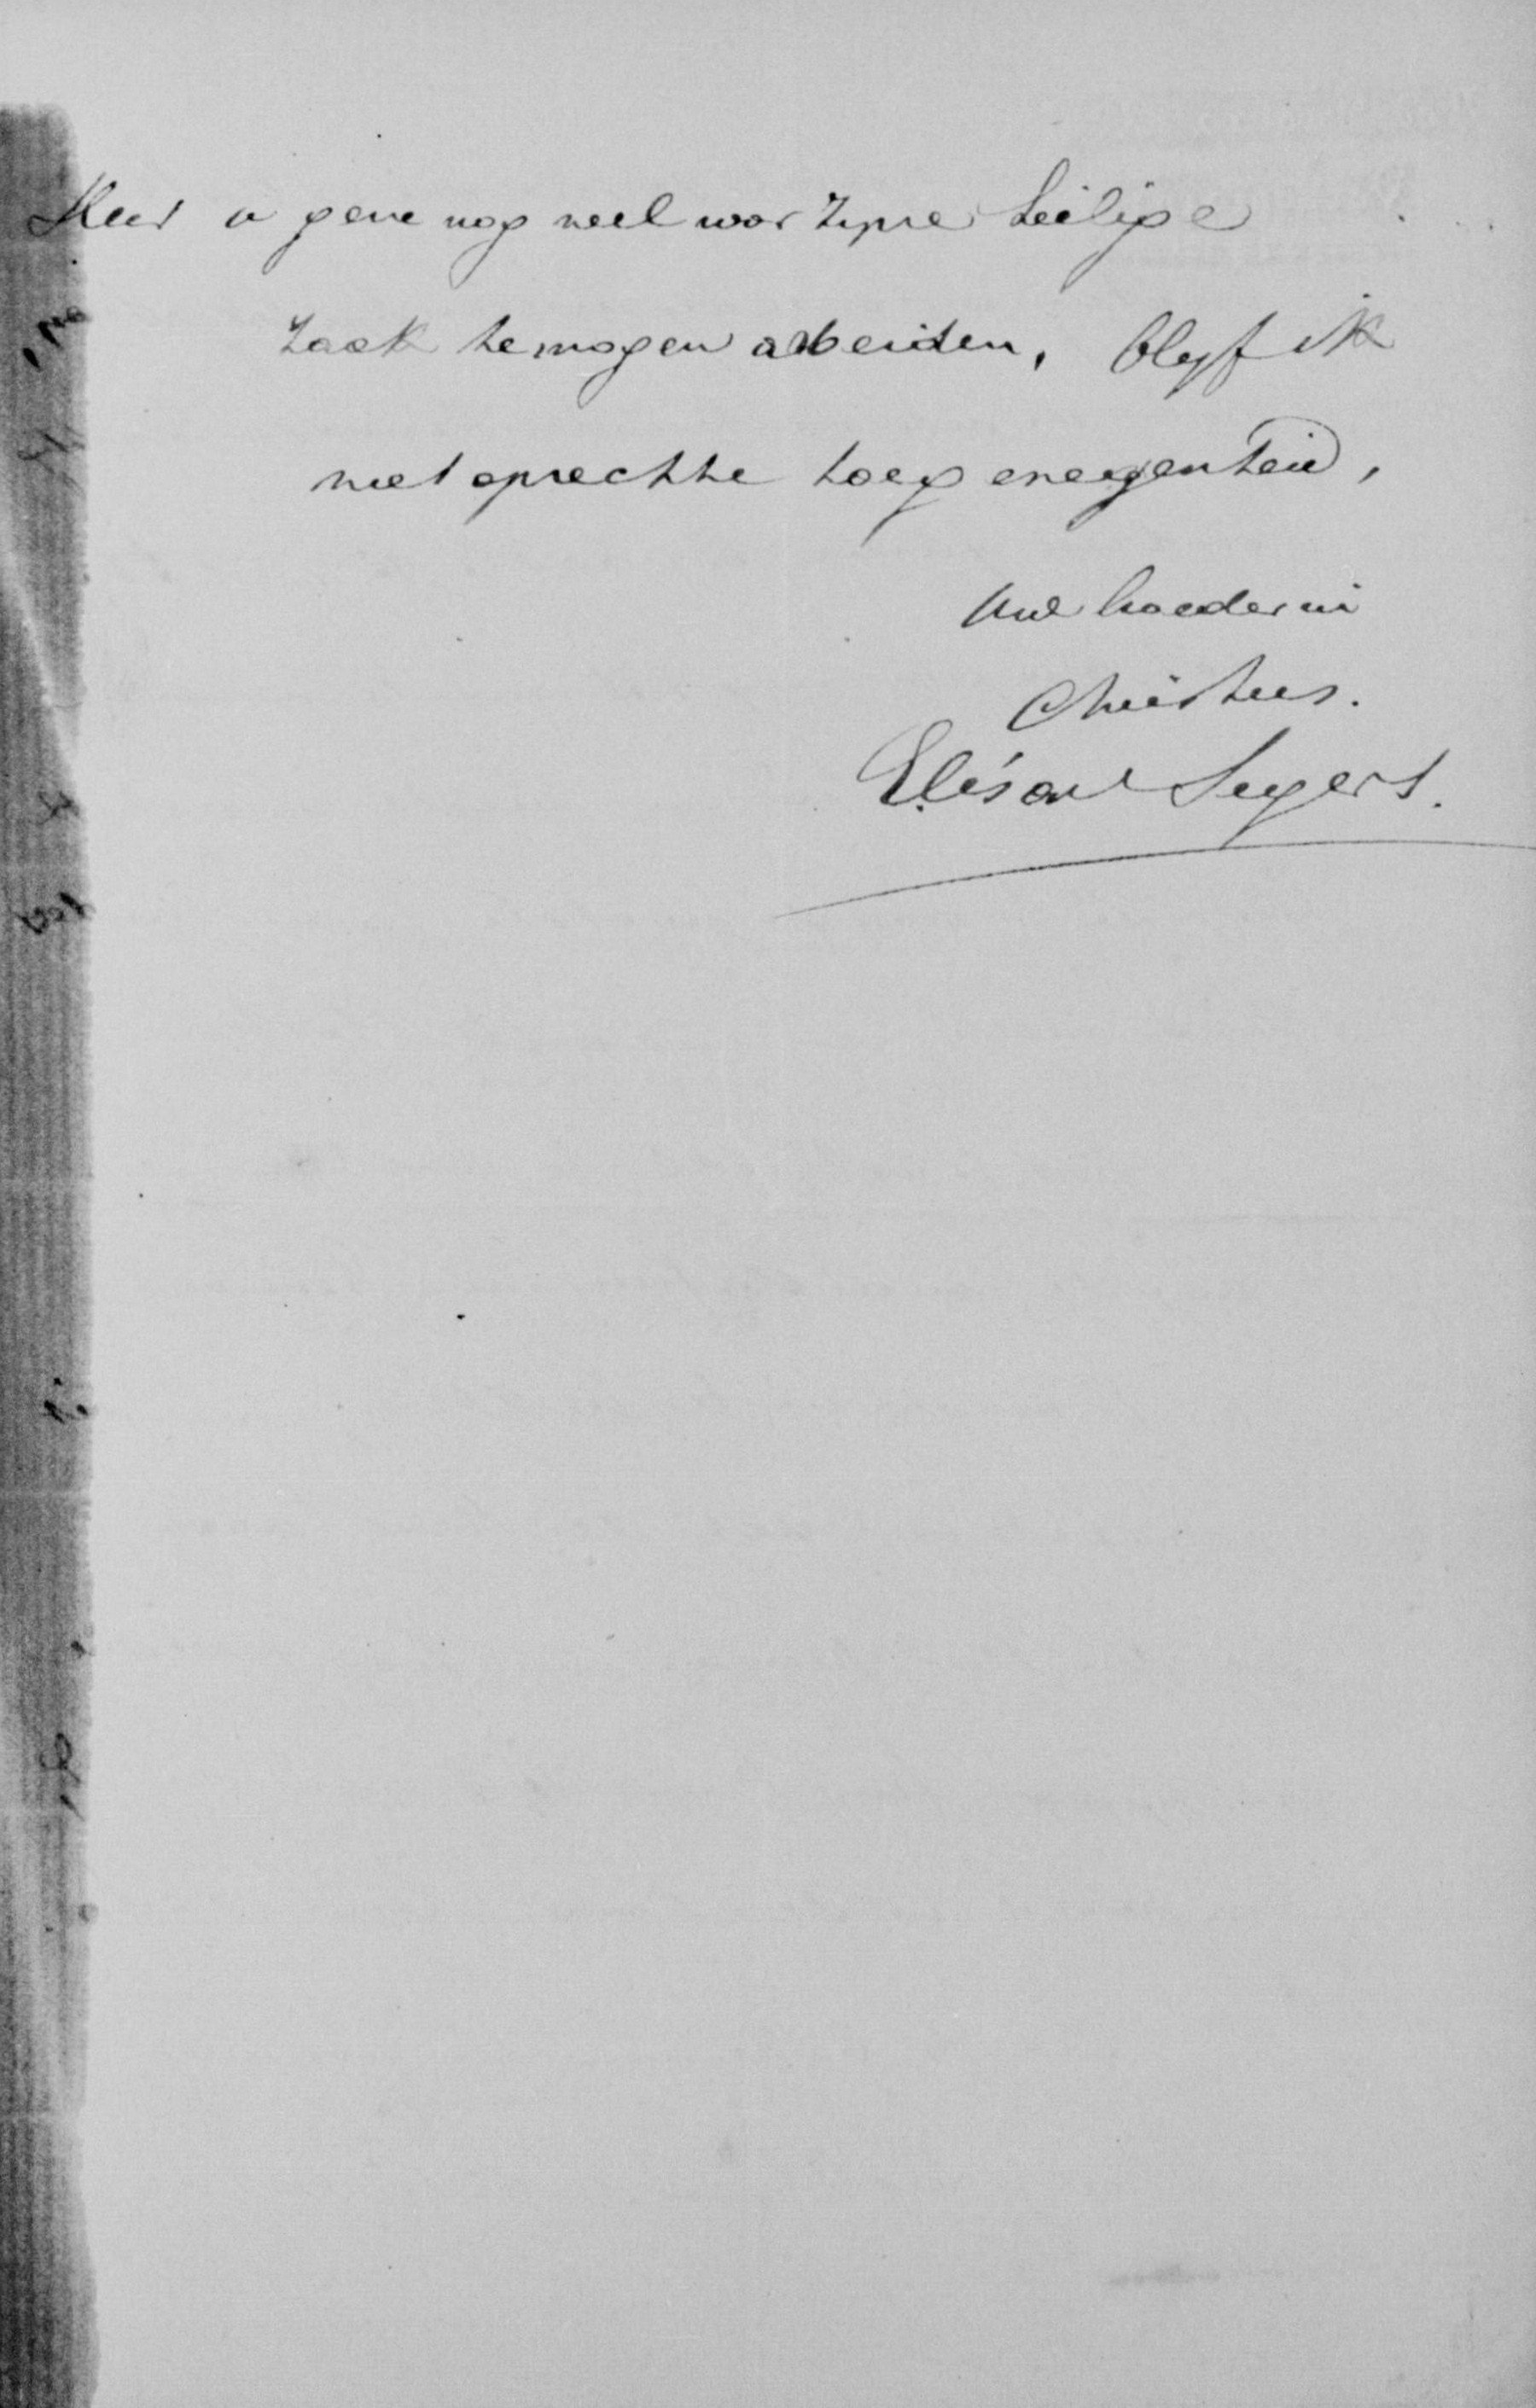 Heer u geve nog veel voor Zijne heilige
zaak te mogen arbeiden, blijf ik
met oprechte toegenegenheid,
Uw broeder in
Christus.
Elésar Segers.